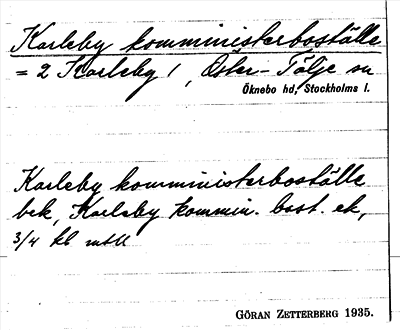 Karleby komministerboställe
= 2 Karleby 1, Öster-Tälje sn
Öknebo hd, Stockholms l.
Karleby komministerboställe
bek, Karleby kommin. bost. ek,
3/4 kb mtll
GÖRAN ZETTERBERG 1935.